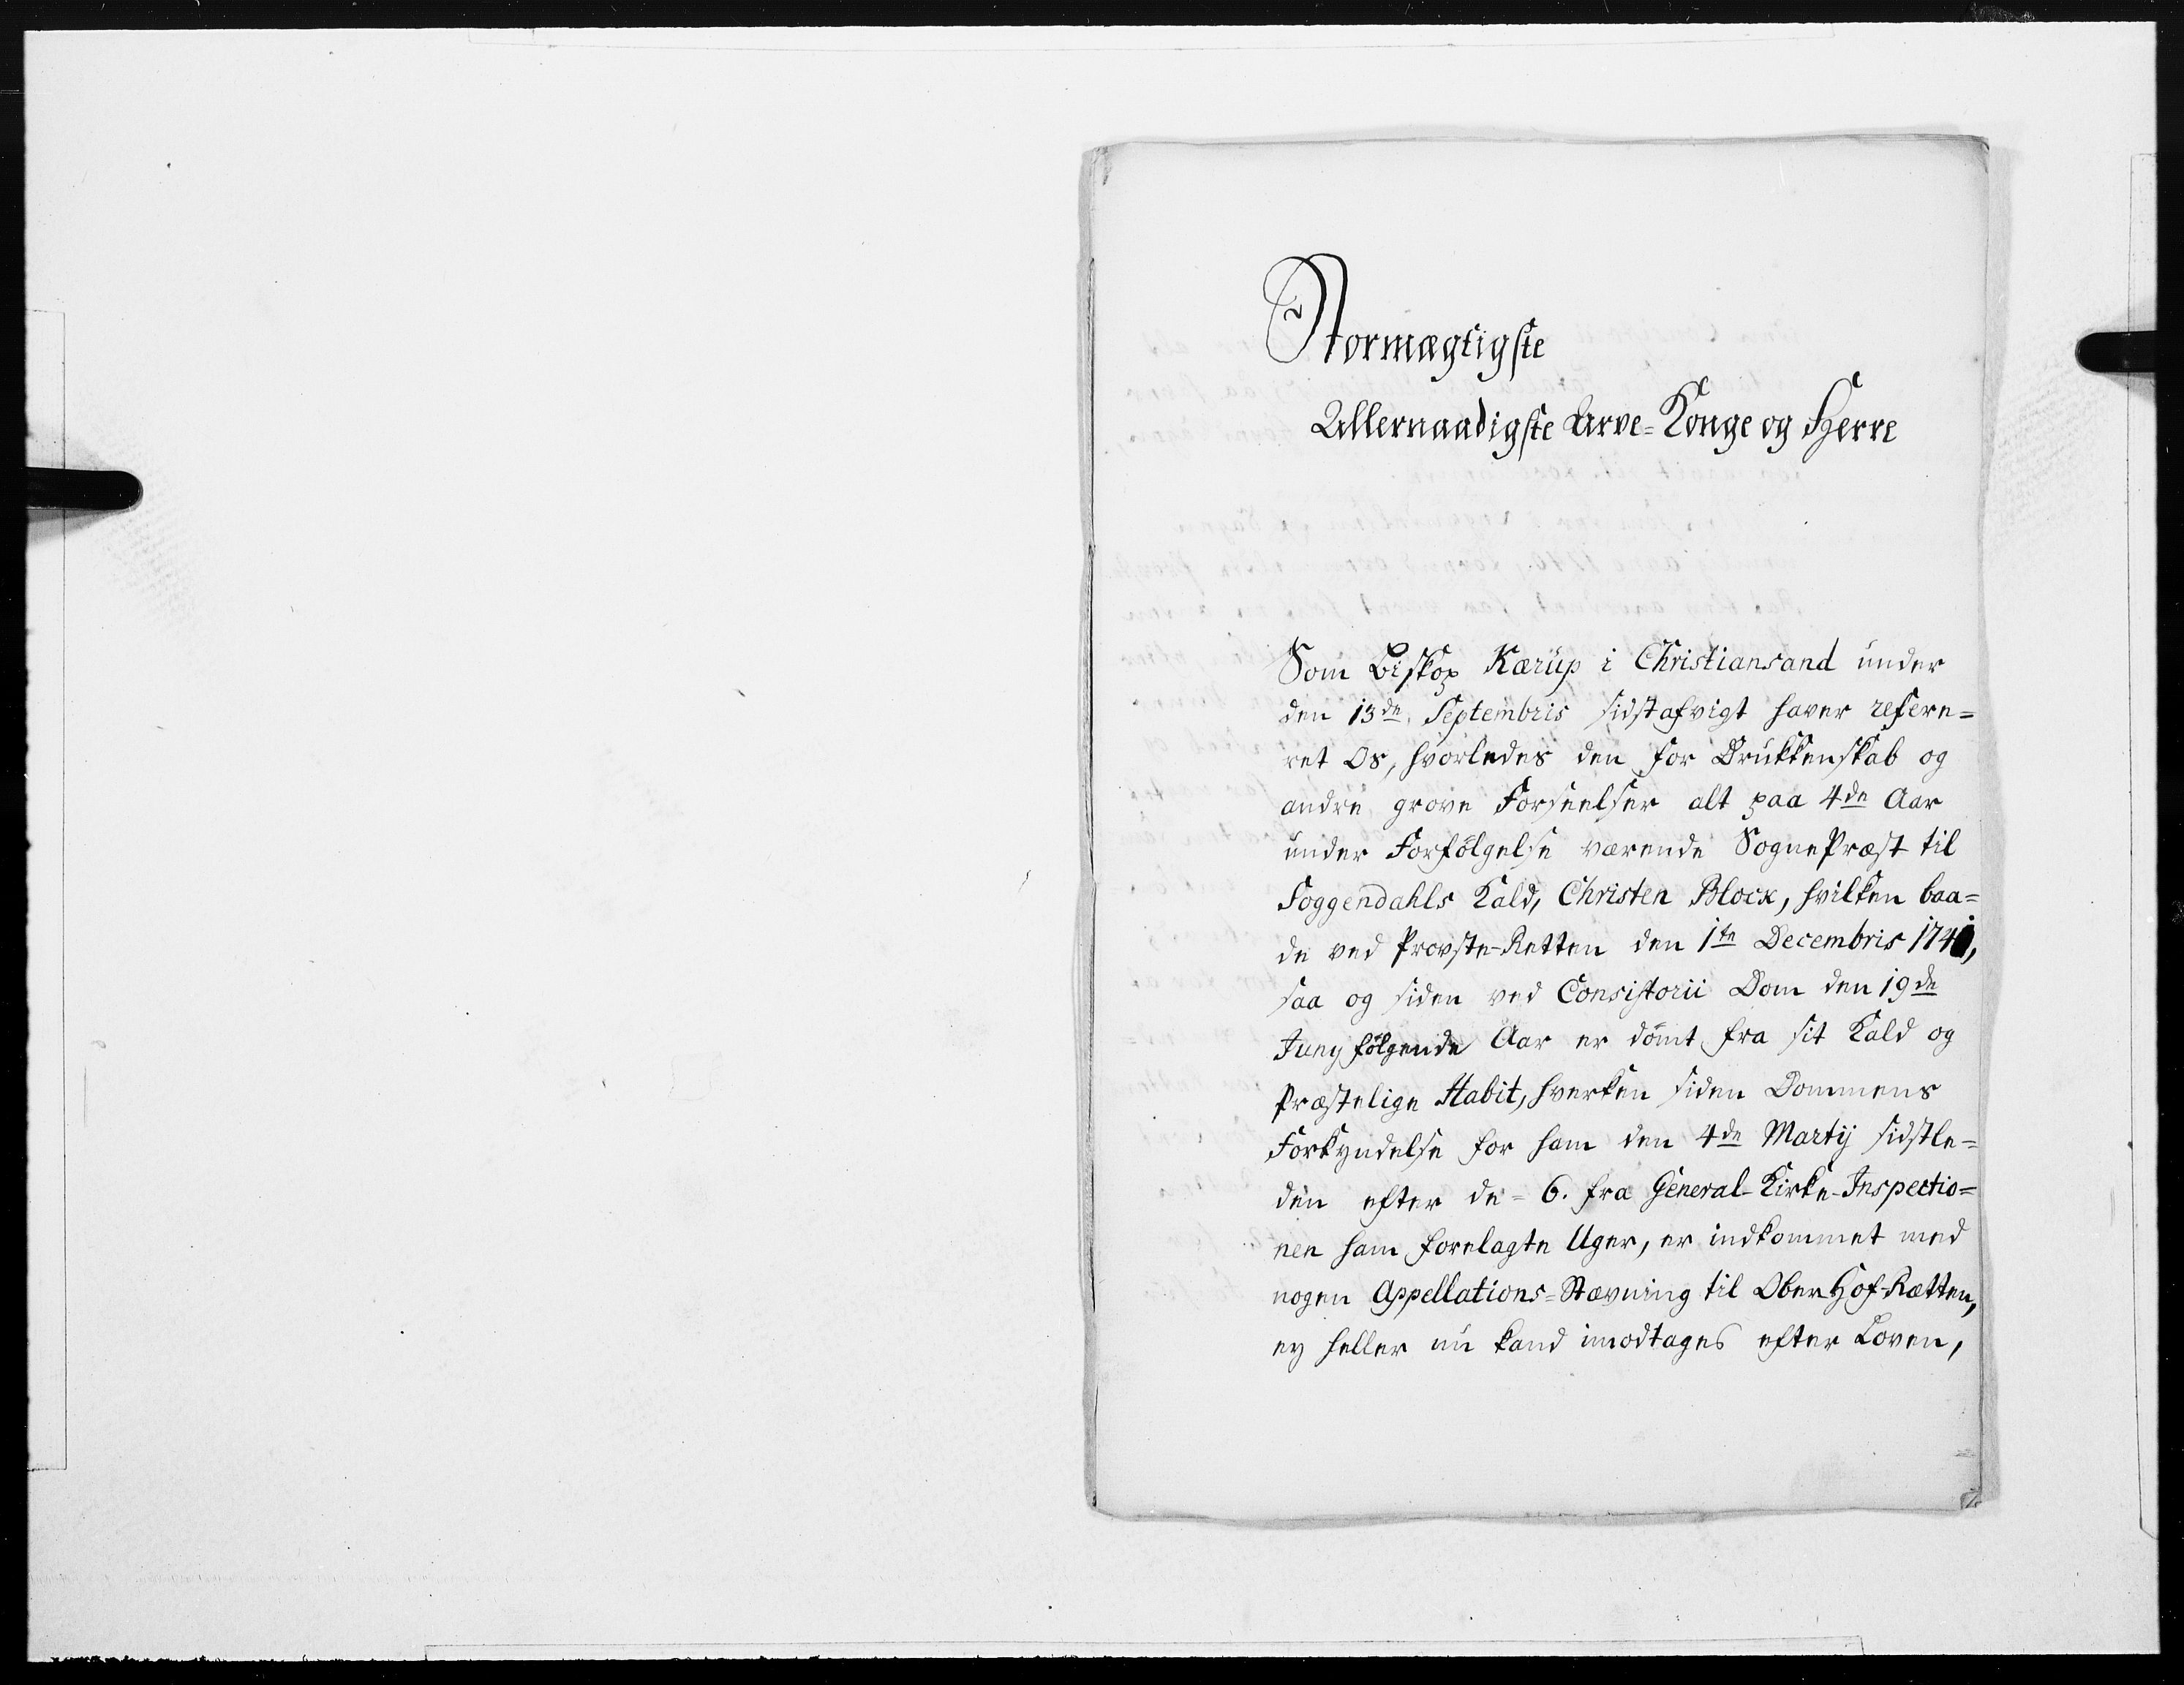 Stormægtigste
Allernaadigste Arve=Konge og Herre
Som Biskop Kærup i Christiansand under
den 13de Septembris sidstafvigt haver refere=
ret Os, hvorledes den for Drukkenskab og
andre grove Forseelser alt paa 4de Aar
under Forfølgelse værende SognePræst til
Soggendahls Kald, Christen Block, hvilken baa=
de ved Provste-Retten den 1te Decembris 1741,
saa og siden ved Consistorii Dom den 19de
Juny følgende Aar er dømt fra sit Kald og
Præstelige Habit, hverken siden Dommens
Forkyndelse for ham den 4de Martij sidstle=
den efter de=6. fra General-Kirke-Inspectio=
nen ham forelagte Uger, er indkommet med
nogen Appellations=Stævning til OberHof-Rætten,
ey heller nu kand imodtages efter Loven,